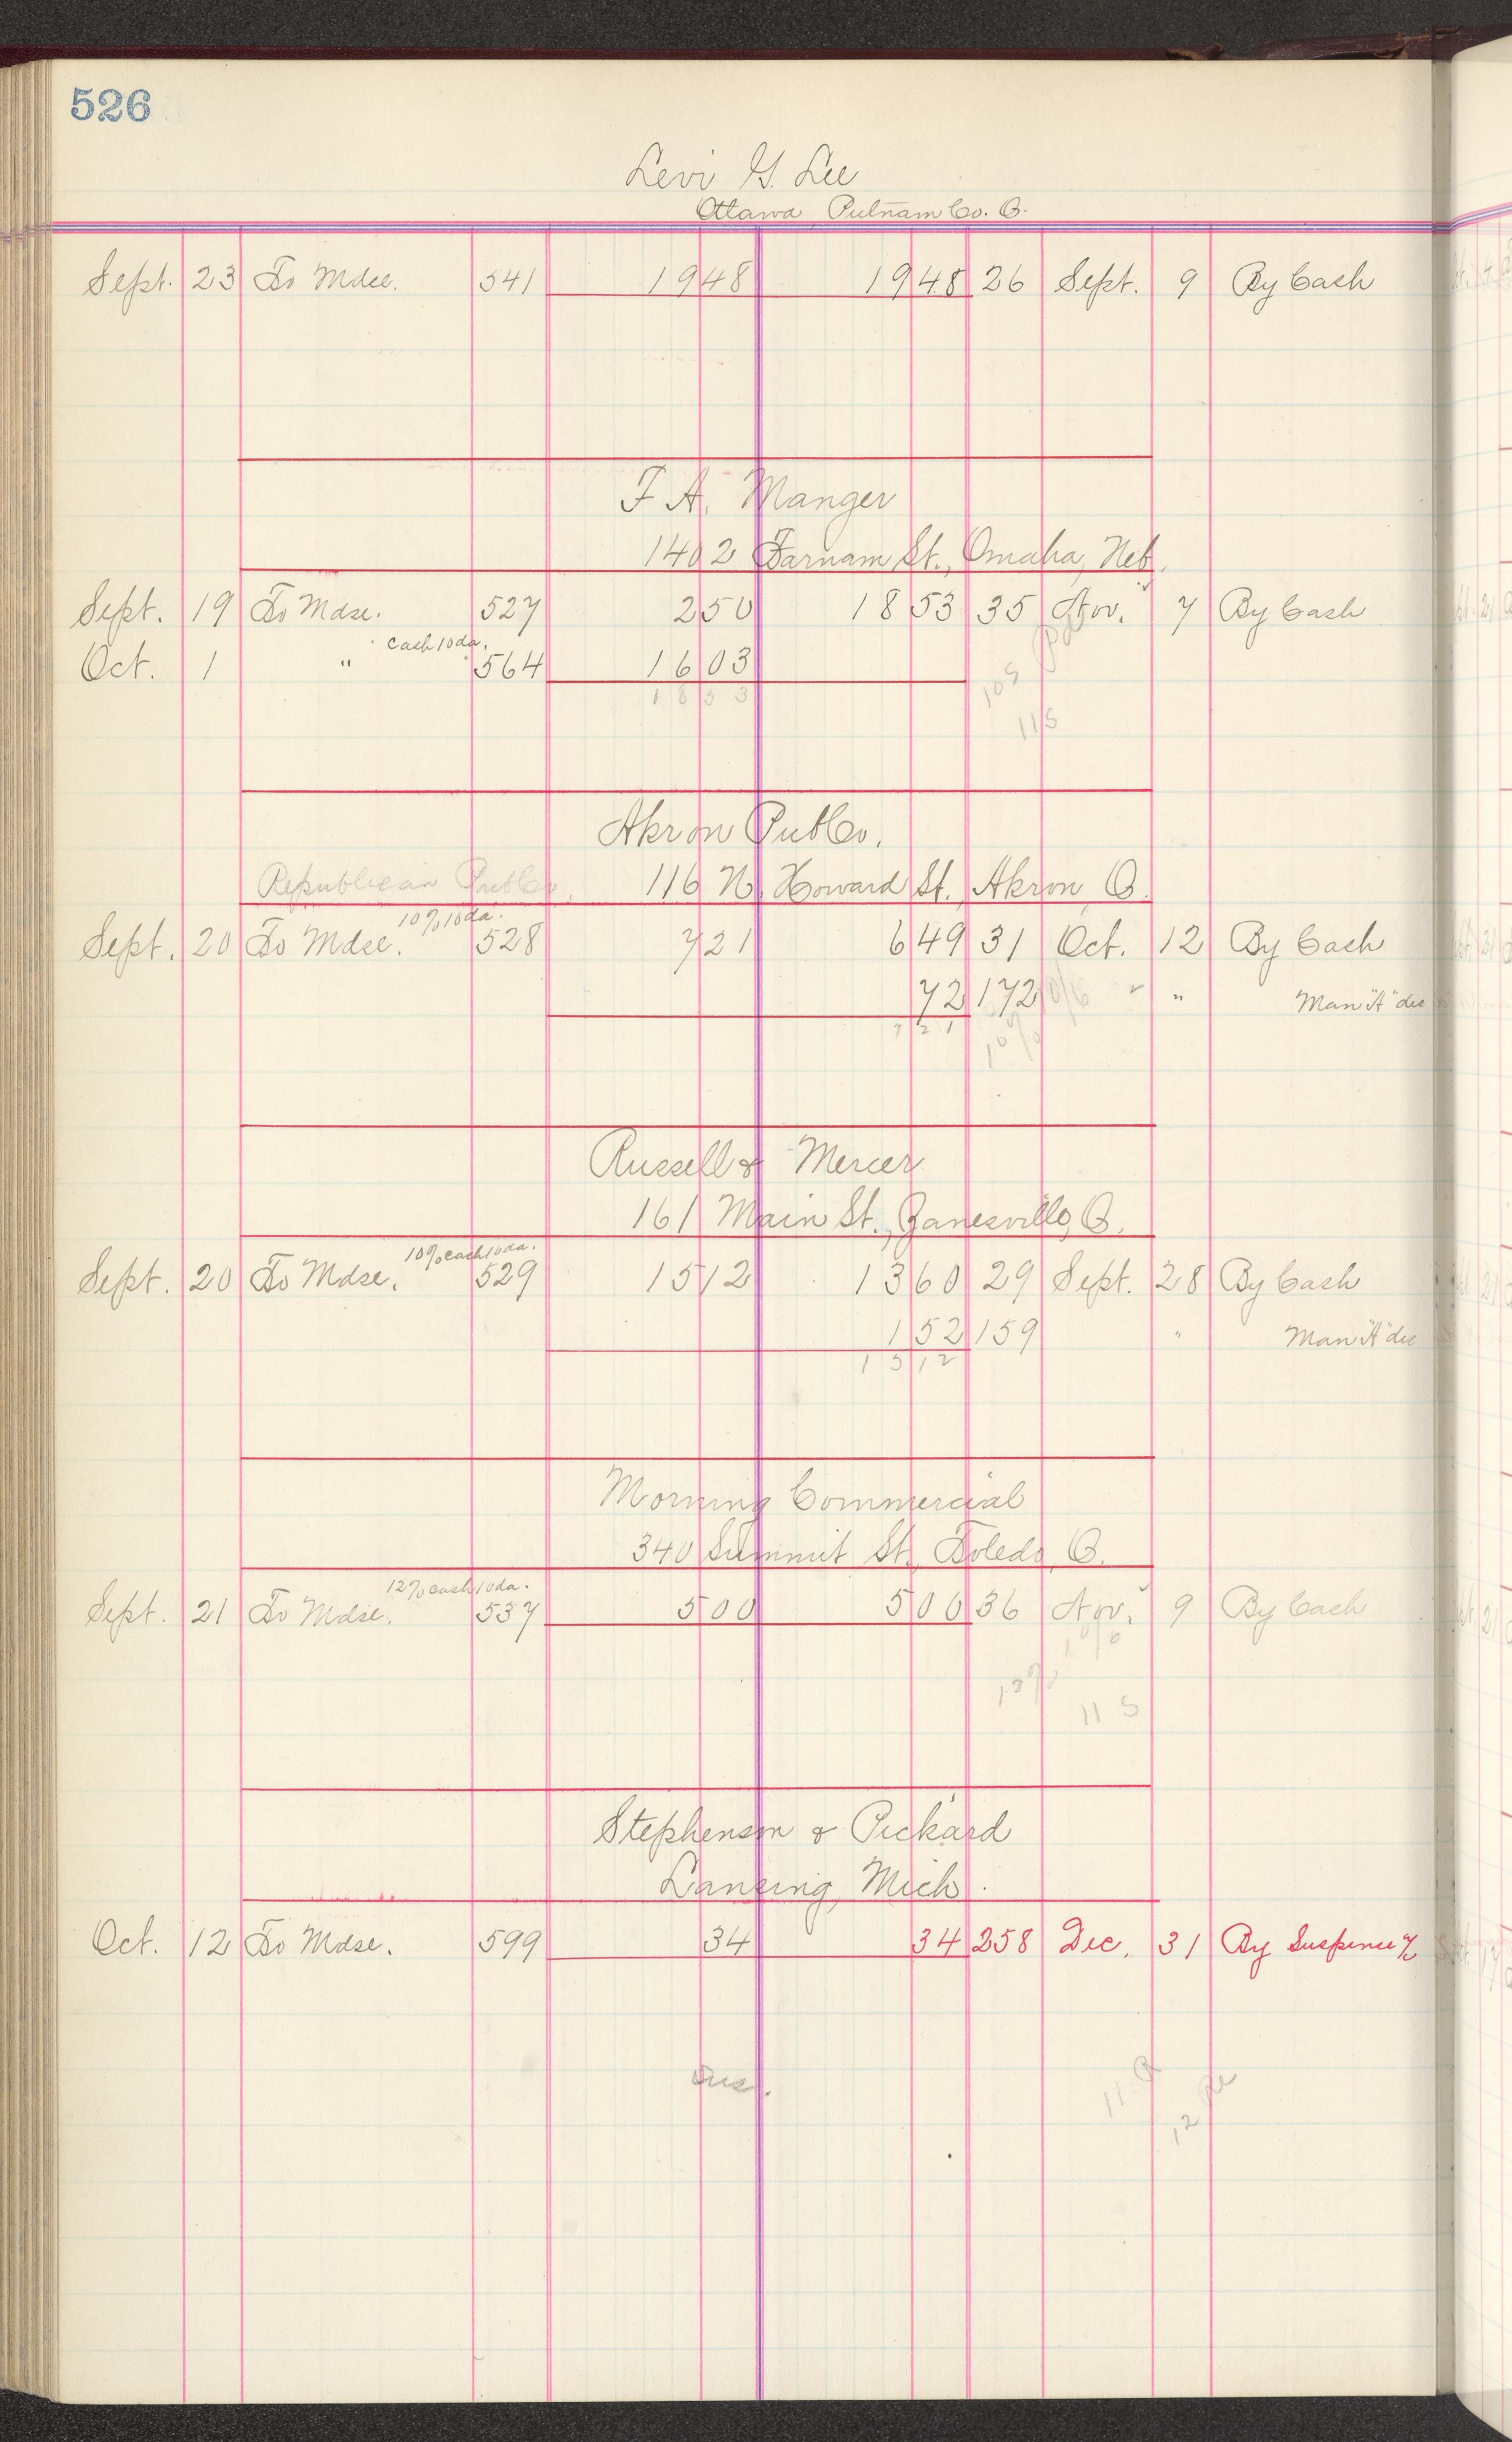 526
Levi G. Lee
Ottawa Putnam Co. O.
Sept. 23 To Mdse. 541 19 48 19 48 26 Sept. 9 By Cash
F. A. Manger
1402 Farnam St., Omaha, Neb.
Sept. 19 To Mdse. 527 2 50 18 53 35 Nov. 7 By Cash
cash 10 da.
Oct. 1 " 564 16 03
18 53
115
Akron Pub Co.
Republican Pub Co. 116 N. Howard St., Akron, O.
10% 10 da.
Sept. 20 To Mdse. 528 7 21 6 49 31 Oct. 12 By Cash
72 172 " " Man "A" dis
7 21
10%
Russell & Mercer
161 Main St., Zanesville, O.
10% cash 10 da.
Sept. 20 To Mdse. 529 15 12 13 60 29 Sept. 28 By Cash
1 52 159 " Man "A" dis
15 12
Morning Commercial
340 Summit St. Toledo, O.
12% cash 10 da.
Sept. 21 To Mdse. 537 5 00 5 00 36 Nov. 9 By Cash
11 5
Stephenson & Pickard
Lansing, Mich.
Oct. 12 To Mdse. 599 34 34 258 Dec. 31 By Suspense %
Sus.